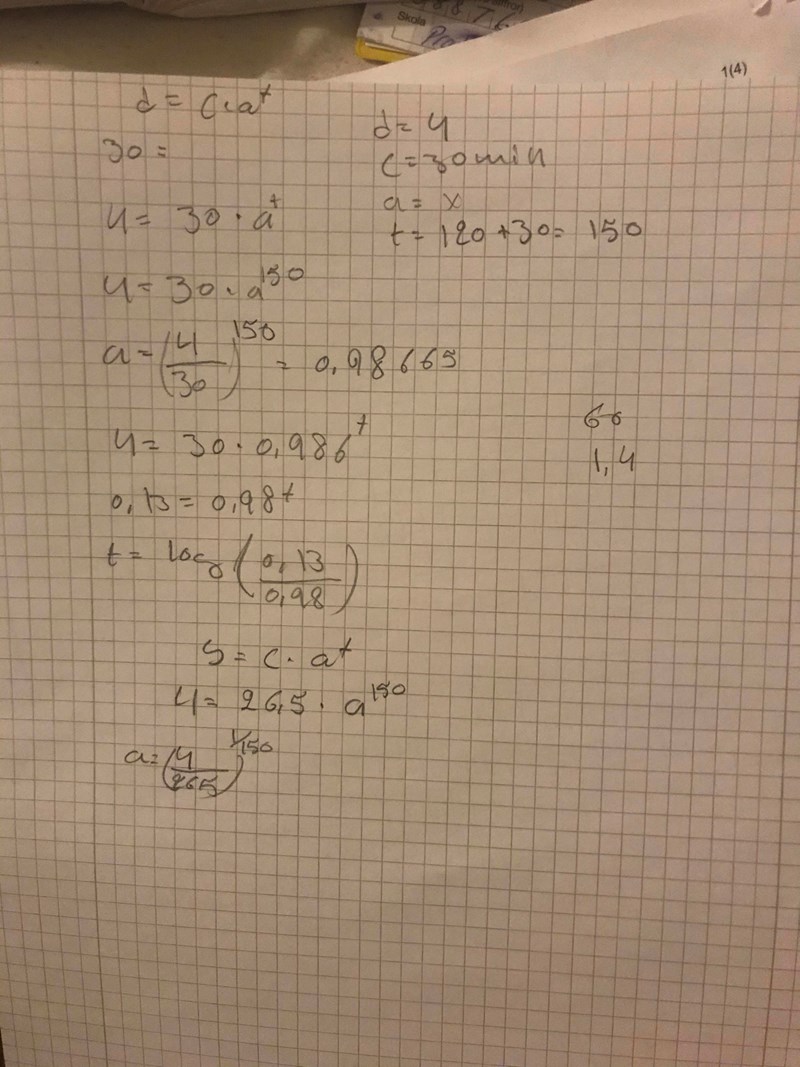 Skola
1(4)
d = C·a^t
30 =
d = 4
C = 30 min
a = x
t = 120 + 30 = 150
4 = 30 · a^t
4 = 30 · a^150
a = (4/30)^150 = 0,98665
60
1,4
4 = 30 · 0,986^t
0,13 = 0,98^t
t = log (0,13/0,98)
S = C · a^t
4 = 26,5 · a^150
a = (4/265)^1/150